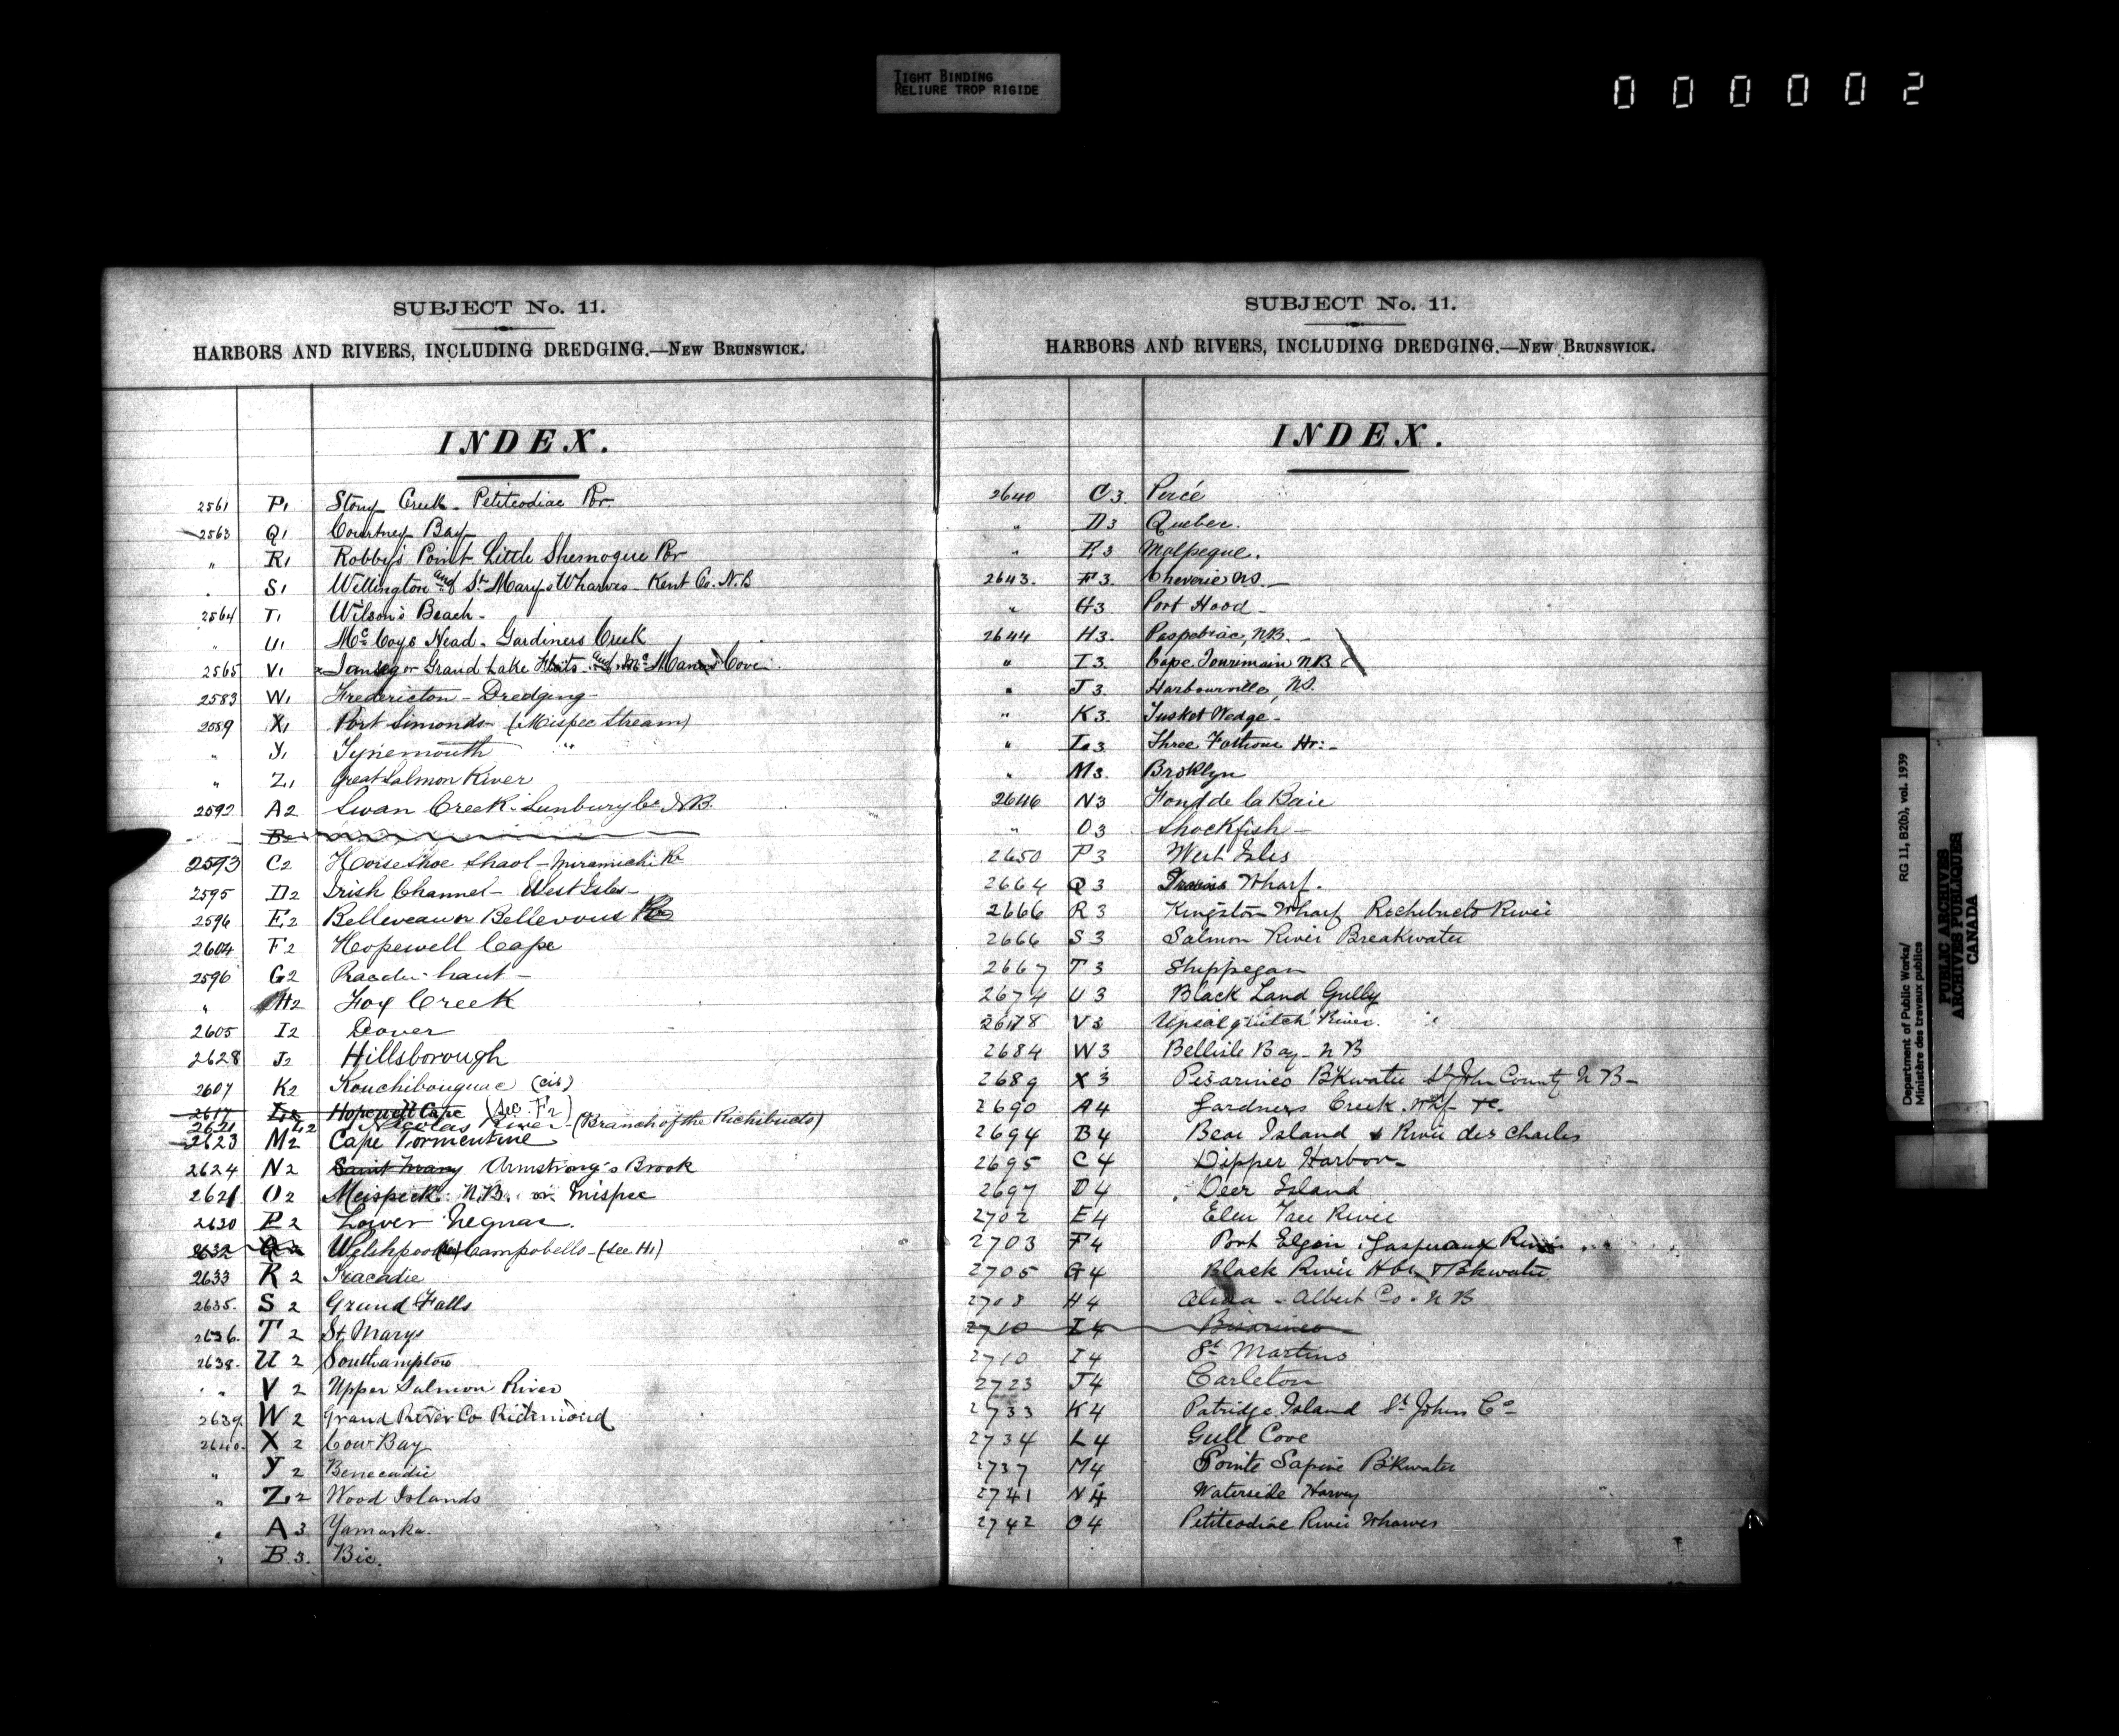 TIGHT BINDING
RELIURE TROP RIGIDE
000002
SUBJECT No. 11.
HARBORS AND RIVERS, INCLUDING DREDGING.—NEW BRUNSWICK.
INDEX.
2561 P1 Stony Creek - Petitcodiac Rr.
2563 Q1 Courtney Bay
" R1 Robby's Point Little Shemogue Rr
" S1 Wellington and St. Marys Wharves - Kent Co. N.B
2564 T1 Wilson's Beach -
" U1 McCoys Head - Gardiners Creek
2565 V1 Jemseg or Grand Lake Flats and Mc Manus Cove
2583 W1 Fredericton - Dredging -
2589 X1 Port Simonds - (Mispec Stream)
" Y1 Tynemouth "
" Z1 Great Salmon River
2592 A2 Swan Creek - Sunbury Co N.B.
B2
2593 C2 Horse Shoe Shaol - Miramichi Rr
2595 D2 Irish Channel - West Isles -
2596 E2 Belleveau or Bellevous
2604 F2 Hopewell Cape
2596 G2 haut -
" H2 Fox Creek
2605 I2 Dover
2628 J2 Hillsborough
2607 K2 Kouchibouguac (cit)
2617 L2 Hopewell Cape (See F2)
2621 L2 Nicolas River - (Branch of the Richibucto)
2623 M2 Cape Tormentine
2624 N2 Saint Mary Armstrong's Brook
2621 O2 Meispeck N.B. or Mispec
2630 P2 Lower Neguac.
2632 Q2 Welshpool Campobello - (see H1)
2633 R2 Tracadie
2635. S2 Grand Falls
2636. T2 St. Marys
2638. U2 Southampton
" V2 Upper Salmon River
2639. W2 Grand River Co Richmond
2640. X2 Cow Bay
" Y2 Benecadie
" Z2 Wood Islands
" A3 Yamaska.
" B3. Bic.
SUBJECT No. 11.
HARBORS AND RIVERS, INCLUDING DREDGING.—NEW BRUNSWICK.
INDEX.
2640 C3. Percé
" D3 Quebec.
" E3 Malpeque.
2643. F3. Cheverie N.S. -
" G3. Port Hood -
2644 H3. Paspebiac, N.B. -
" I3. Cape Jourimain N.B
" J3. Harbourville, N.S.
" K3. Tusket Wedge -
" L3 Three Fathom Hr: -
" M3. Broklyn
2646 N3 Fond de la Baie
" O3 Shockfish -
2650 P3 West Isles
2664 Q3 Wharf.
2666 R3 Kingston Wharf Richibucto River
2666 S3 Salmon River Breakwater
2667 T3 Shippegan
2674 U3 Black Land Gully
2678 V3 Upsalquitch River.
2684 W3 Bellisle Bay - N B
2689 X3 Pisarinco B'kwater St John County N B -
2690 A4 Gardners Creek. Whf &c.
2694 B4 Bear Island & River des Charles
2695 C4 Dipper Harbor -
2697 D4 Deer Island
2702 E4 Elm Tree River
2703 F4 Port Elgin, Gaspereaux River
2705 G4 Black River Hbr & Bkwater
2708 H4 Alma - Albert Co - N B
2710 I4 Pisarinco
2710 I4 St Martins
2723 J4 Carleton
2733 K4 Patridge Island St Johns Co -
2734 L4 Gull Cove
2737 M4 Pointe Sapine B'kwater
2741 N4 Waterside Harvey
2742 O4 Petitcodiac River Wharves
Department of Public Works/ RG 11, B2(b), vol. 1939
Ministère des travaux publics
PUBLIC ARCHIVES
ARCHIVES PUBLIQUES
CANADA